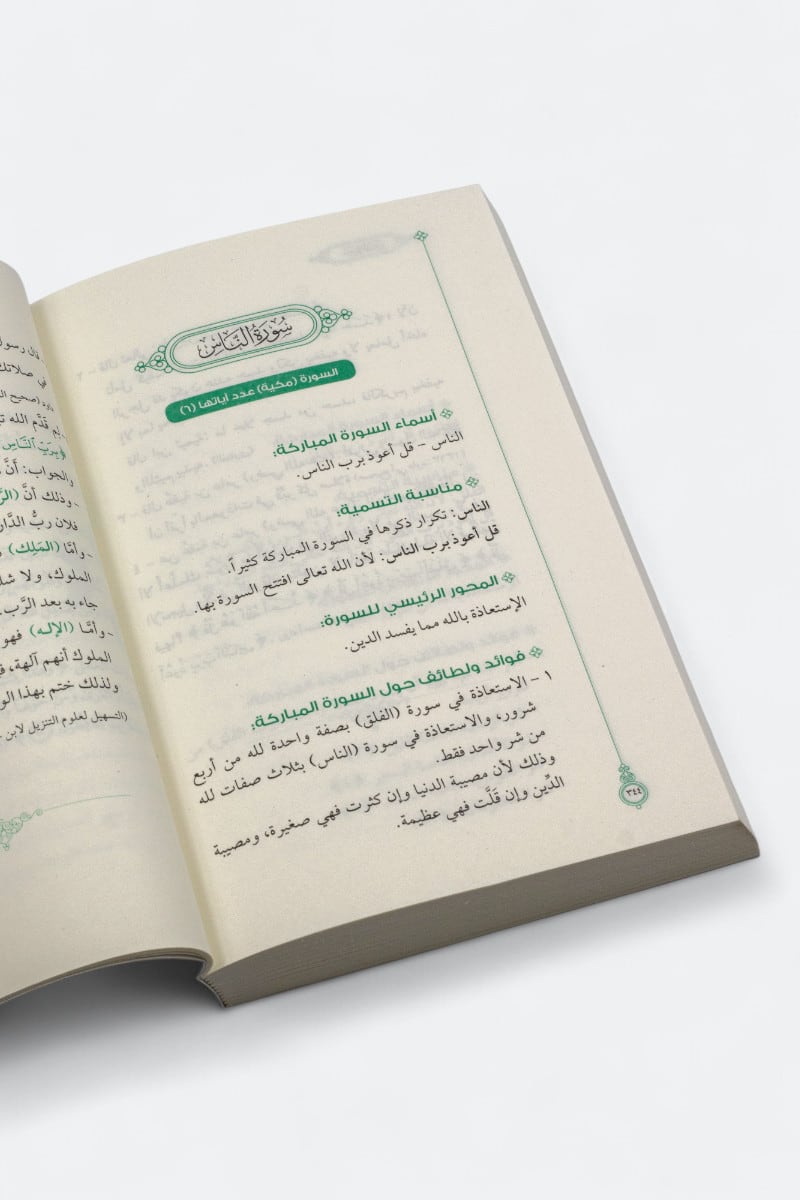 سُورَةُ النَّاسِ
السورة (مكية) عدد آياتها (٦)
أسماء السورة المباركة:
الناس - قل أعوذ برب الناس.
مناسبة التسمية:
الناس: تكرار ذكرها في السورة المباركة كثيراً.
قل أعوذ برب الناس: لأن الله تعالى افتتح السورة بها.
المحور الرئيسي للسورة:
الإستعاذة بالله مما يفسد الدين.
فوائد ولطائف حول السورة المباركة:
١ - الاستعاذة في سورة (الفلق) بصفة واحدة لله من أربع
شرور، والاستعاذة في سورة (الناس) بثلاث صفات لله
من شر واحد فقط.
وذلك لأن مصيبة الدنيا وإن كثرت فهي صغيرة، ومصيبة
الدِّين وإن قَلَّت فهي عظيمة.
٣٤٤
قال رسول
في صلاتك
(صحيح
لم قدَّم الله
بِرَبِّ ٱلنَّاسِ
والجواب: أنَّ
- وذلك أنَّ
فلان ربُّ الدَّار
- وأمَّا (المَلِك)
الملوك، ولا
جاء به بعد الرَّب.
- وأمَّا (الإله) فهو
الملوك أنهم آلهة،
ولذلك ختم بهذا
(التسهيل لعلوم التنزيل لابن